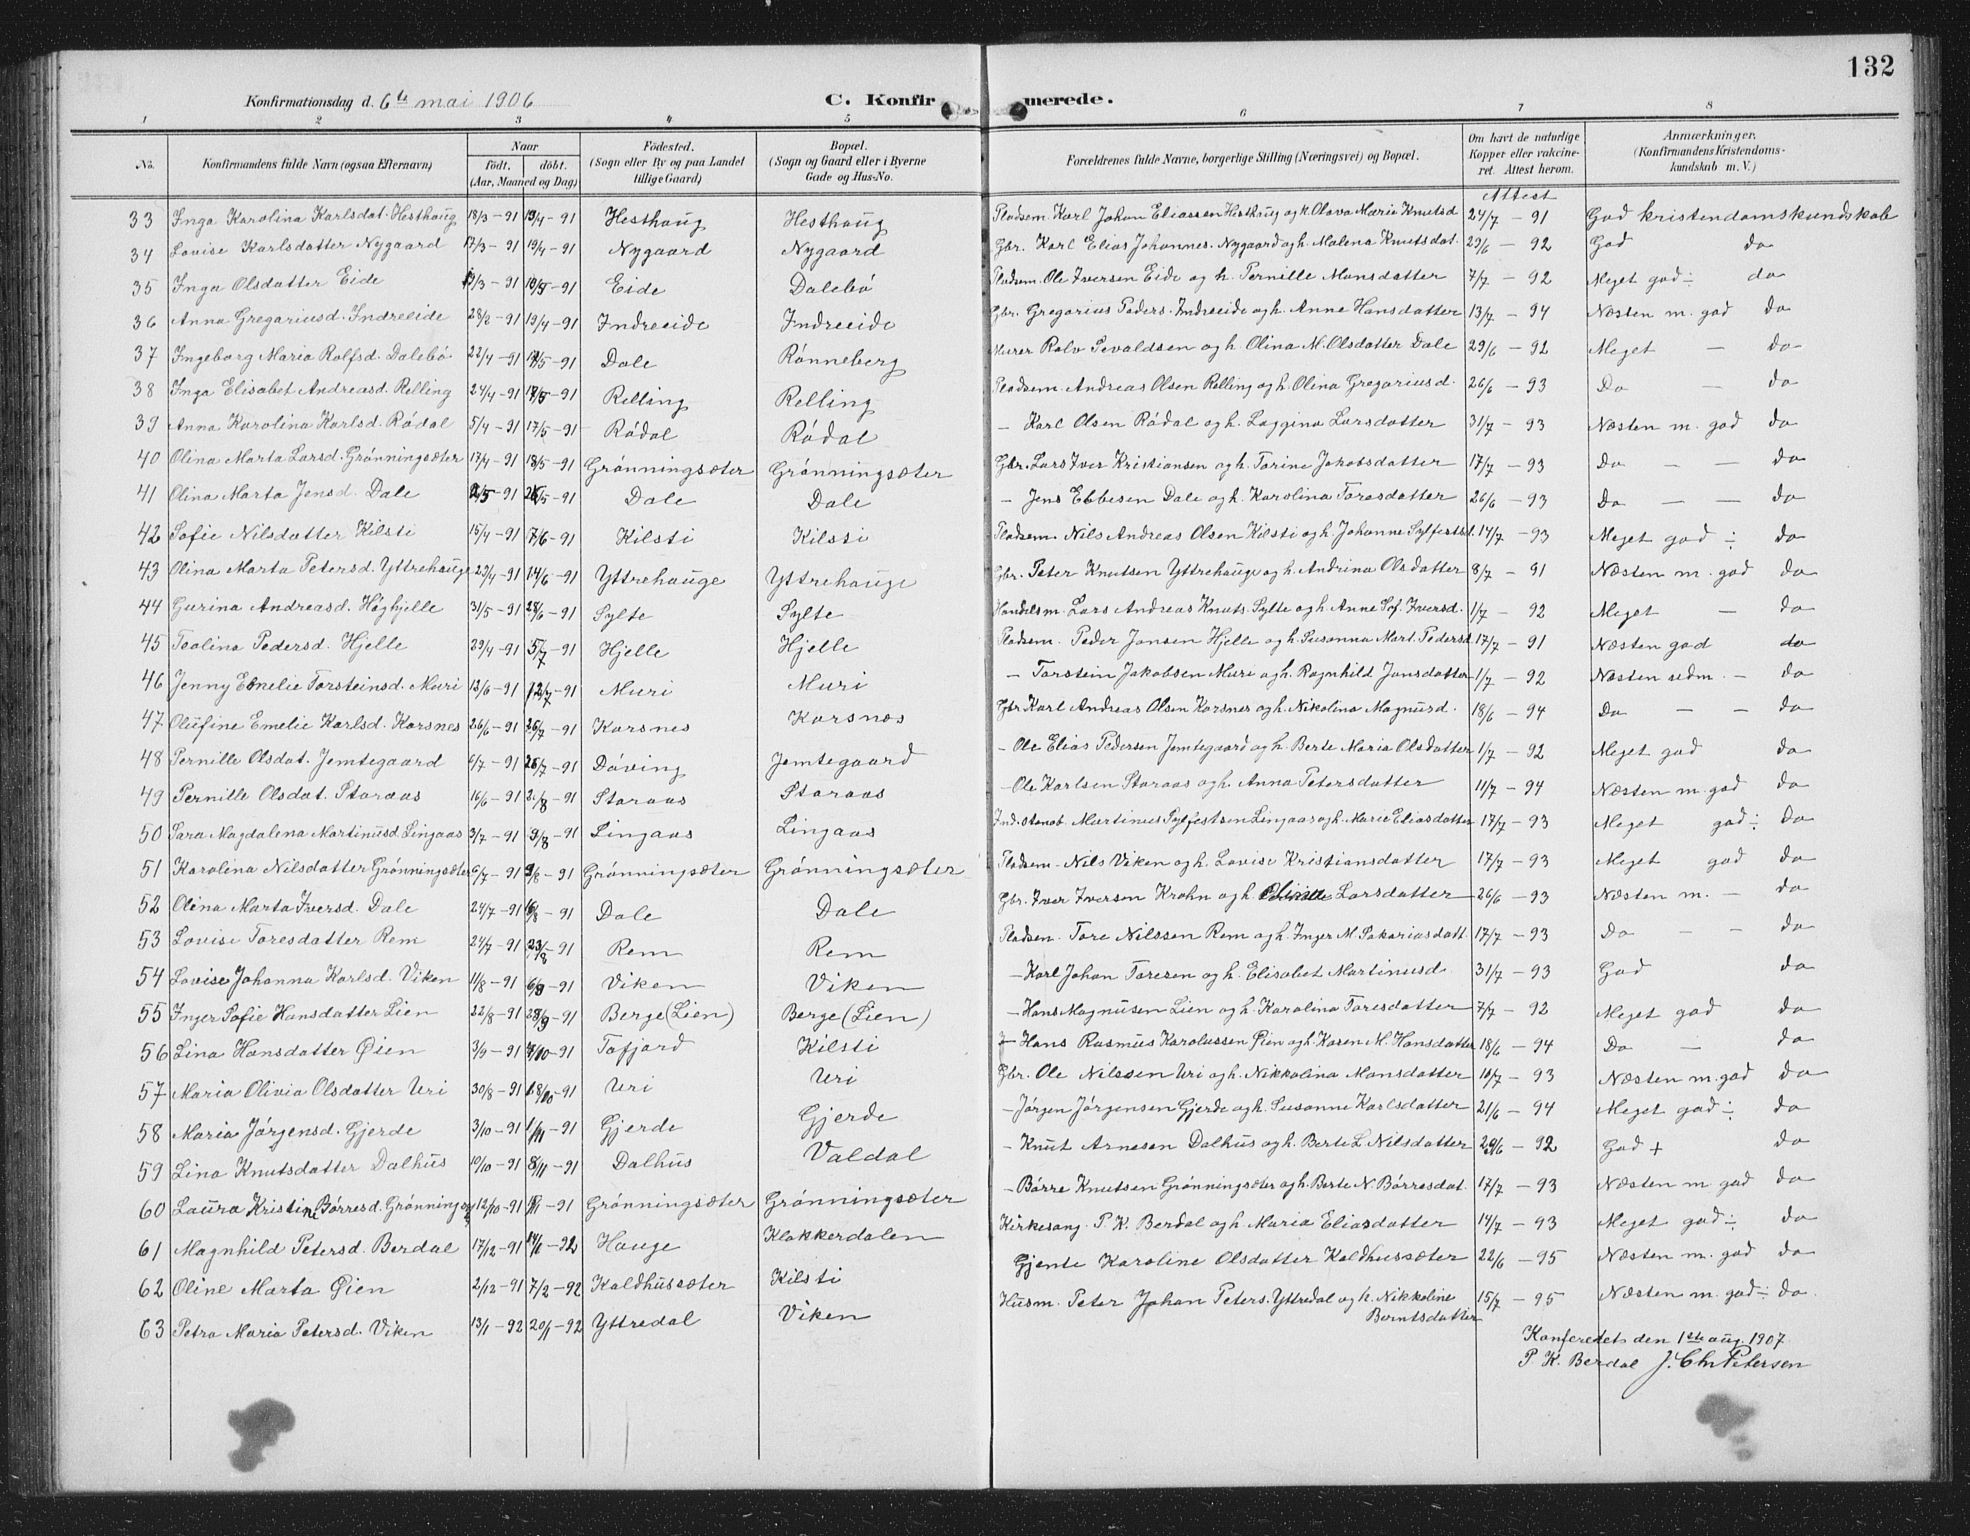 132
Konfirmationsdag d. 6te mai 1906 C. Konfirmerede.
1 2 3 4 5 6 7 8
No. Konfirmandens fulde Navn (ogsaa Efternavn) Naar født, døbt. (Aar, Maaned og Dag) Födested. (Sogn eller By og paa Landet tillige Gaard) Bopæl. (Sogn og Gaard eller i Byerne Gade og Hus-No. Forældrenes fulde Navne, borgerlige Stilling (Næringsvei) og Bopæl. Om havt de naturlige Kopper eller vakcineret. Attest herom. Anmærkninger. (Konfirmandens Kristendomskundskab m. V.)
Attest
33 Inga Karolina Karlsdat. Hesthaug 18/3-91 19/4-91 Hesthaug Hesthaug Pladsem. Karl Johan Eliassen Hesthaug og h. Olava Marie Knutsd 24/7-91 God kristendomskundskab
34 Lovise Karlsdatter Nygaard 17/3-91 19/4-91 Nygaard Nygaard Gbr. Karl Elias Johannes. Nygaard og h. Malena Knutsdat. 29/6-92 God do
35 Inga Olsdatter Eide /3-91 10/5-91 Eide Dalebø Pladsem. Ole Iversen Eide og h. Pernille Monsdatter 7/7-92 Meget god ÷ do
36 Anna Gregariusd. Indreeide 28/2-91 19/4-91 Indreeide Indreeide Gbr. Gregarius Peders. Indreeide og h. Anne Hansdatter 13/7-94 Næsten m. god do
37 Ingeborg Maria Rolfsd. Dalebö 22/4-91 /5-91 Dale Rønneberg Murer Rolv Sevaldsen og h. Olina M. Olsdatter Dale 29/6-92 Meget — do
38 Inga Elisabet Andreasd. Relling 24/4-91 17/5-91 Relling Relling Pladsem. Andreas Olsen Relling og h. Olina Gregariusd. 26/6-93 Do — do
39 Anna Karolina Karlsd. Rødal 5/4-91 17/5-91 Rødal Rødal — Karl Olsen Rødal og h. Laggina Larsdatter 31/7-93 Næsten m. god do
40 Olina Marta Larsd. Grønningsæter 17/4-91 18/5-91 Grønningsæter Grønningsæter Gbr. Lars Iver Kristiansen og h. Torine Jakobsdatter 17/7-93 Do — — do
41 Olina Marta Jensd. Dale 2/5-91 /5-91 Dale Dale — Jens Ebbesen Dale og h. Karolina Toresdatter 26/6-93 Do — — do
42 Sofie Nilsdatter Kilsti 15/4-91 7/6-91 Kilsti Kilsti Pladsem. Nils Andreas Olsen Kilsti og h. Johanne Sylfestsd. 14/7-93 Meget god ÷ do
43 Olina Marta Petersd. Yttrehauge 29/4-91 14/6-91 Yttrehauge Yttrehauge Gbr. Peter Knutsen Yttrehauge og h. Andrina Olsdatter 8/7-91 Næsten m. god do
44 Gurina Andreasd. Høghjelle 31/5-91 28/6-91 Sylte Sylte Handelsm. Lars Andreas Knuts. Sylte og h. Anne Sof. Iversd. 1/7-92 Meget — do
45 Taalina Pedersd. Hjelle 29/4-91 5/7-91 Hjelle Hjelle Pladsem. Peder Jansen Hjelle og h. Susanna Mart. Pedersd. 17/7-91 Næsten god do
46 Jenny Emelie Torsteinsd. Muri 13/6-91 12/7-91 Muri Muri — Torstein Jakobsen Muri og h. Ragnhild Jonsdatter 1/7-92 Næsten sedm. — do
47 Olufine Emelie Karlsd. Korsnes 26/6-91 26/7-91 Korsnes Korsnes Gbr. Karl Andreas Olsen Korsnes og h. Nikolina Magnusd. 18/6-94 Do — — do
48 Pernille Olsdat. Jemtegaard 6/7-91 26/7-91 Døving Jemtegaard — Ole Elias Pedersen Jemtegaard og h. Berte Maria Olsdatter 1/7-92 Meget god do
49 Pernille Olsdat. Storaas 16/6-91 2/8-91 Storaas Storaas — Ole Karlsen Storaas og h. Anna Petersdatter 11/7-94 Næsten m. god do
50 Sara Magdalena Martinusd. Lingaas 3/7-91 9/8-91 Lingaas Lingaas Martinus Sylfestsen Lingaas og h. Marie Eliasdatter 17/7-93 Meget god ÷ do
51 Karolina Nilsdatter Grønningsæter 6/7-91 9/8-91 Grønningsæter Grønningsæter Pladsem. Nils Viken og h. Lovise Kristiansdatter 17/7-93 Meget god do
52 Olina Marta Iversd. Dale 24/7-91 16/8-91 Dale Dale Gbr. Iver Iversen Krohn og h. Larsdatter 26/6-93 Næsten m. — do
53 Lovise Toresdatter Rem 24/7-91 23/8-91 Rem Rem Pladsen. Tore Nilssen Rem og h. Inger M. Sakariasdatt. 17/7-93 Do — — do
54 Lovise Johanna Karlsd. Viken 11/8-91 6/9-91 Viken Viken — Karl Johan Toresen og h. Elisabet Martinusd. 31/7-93 God do
55 Inger Sofie Hansdatter Lien 22/8-91 28/9-91 Berge (Lien) Berge (Lien) — Hans Magnusen Lien og h. Karolina Toresdatter 7/7-92 Meget god do
56 Lina Hansdatter Øien 3/9-91 /10-91 Tafjord Kilsti — Hans Rasmus Karolussen Øien og h. Karen M. Hansdatter 18/6-94 Do — do
57 Maria Olivia Olsdatter Uri 30/8-91 18/10-91 Uri Uri Gbr. Ole Nilssen Uri og h. Nikkolina Monsdatter 10/7-93 Næsten m. god do
58 Maria Jørgensd. Gjerde 3/10-91 1/11-91 Gjerde Gjerde — Jørgen Jørgensen Gjerde og h. Susanne Karlsdatter 21/6-94 Meget god ÷ do
59 Lina Knutsdatter Dalhus 10/10-91 8/11-91 Dalhus Valdal — Knut Arnesen Dalhus og h. Berte L. Nilsdatter 29/6-92 God + do
60 Laura Kristine Børresd. Grønningsæ 12/10-91 /11-91 Grønningsæter Grønningsæter — Børre Knutsen Grønningsæter og h. Berte N. Børresdat. 17/7-93 Næsten m. god do
61 Magnhild Petersd. Berdal 17/12-91 /1-92 Hauge Klokkerdalen Kirkesang. P. K. Berdal og h. Maria Eliasdatter 14/7-93 Meget god ÷ do
62 Oline Marta Øien 2/12-91 7/2-92 Kaldhussæter Kilsti Gjente Karoline Olsdatter Kaldhussæter 22/6-95 Næsten m. god do
63 Petra Maria Petersd. Viken 13/1-92 20/1-92 Yttredal Viken Husm. Peter Johan Peters. Yttredal og h. Nikkoline Berntsdatter 15/7-95 Næsten m. god ÷ do
Konferedets den 1ste aug. 1907
P. K. Berdal J. Chr Petersen